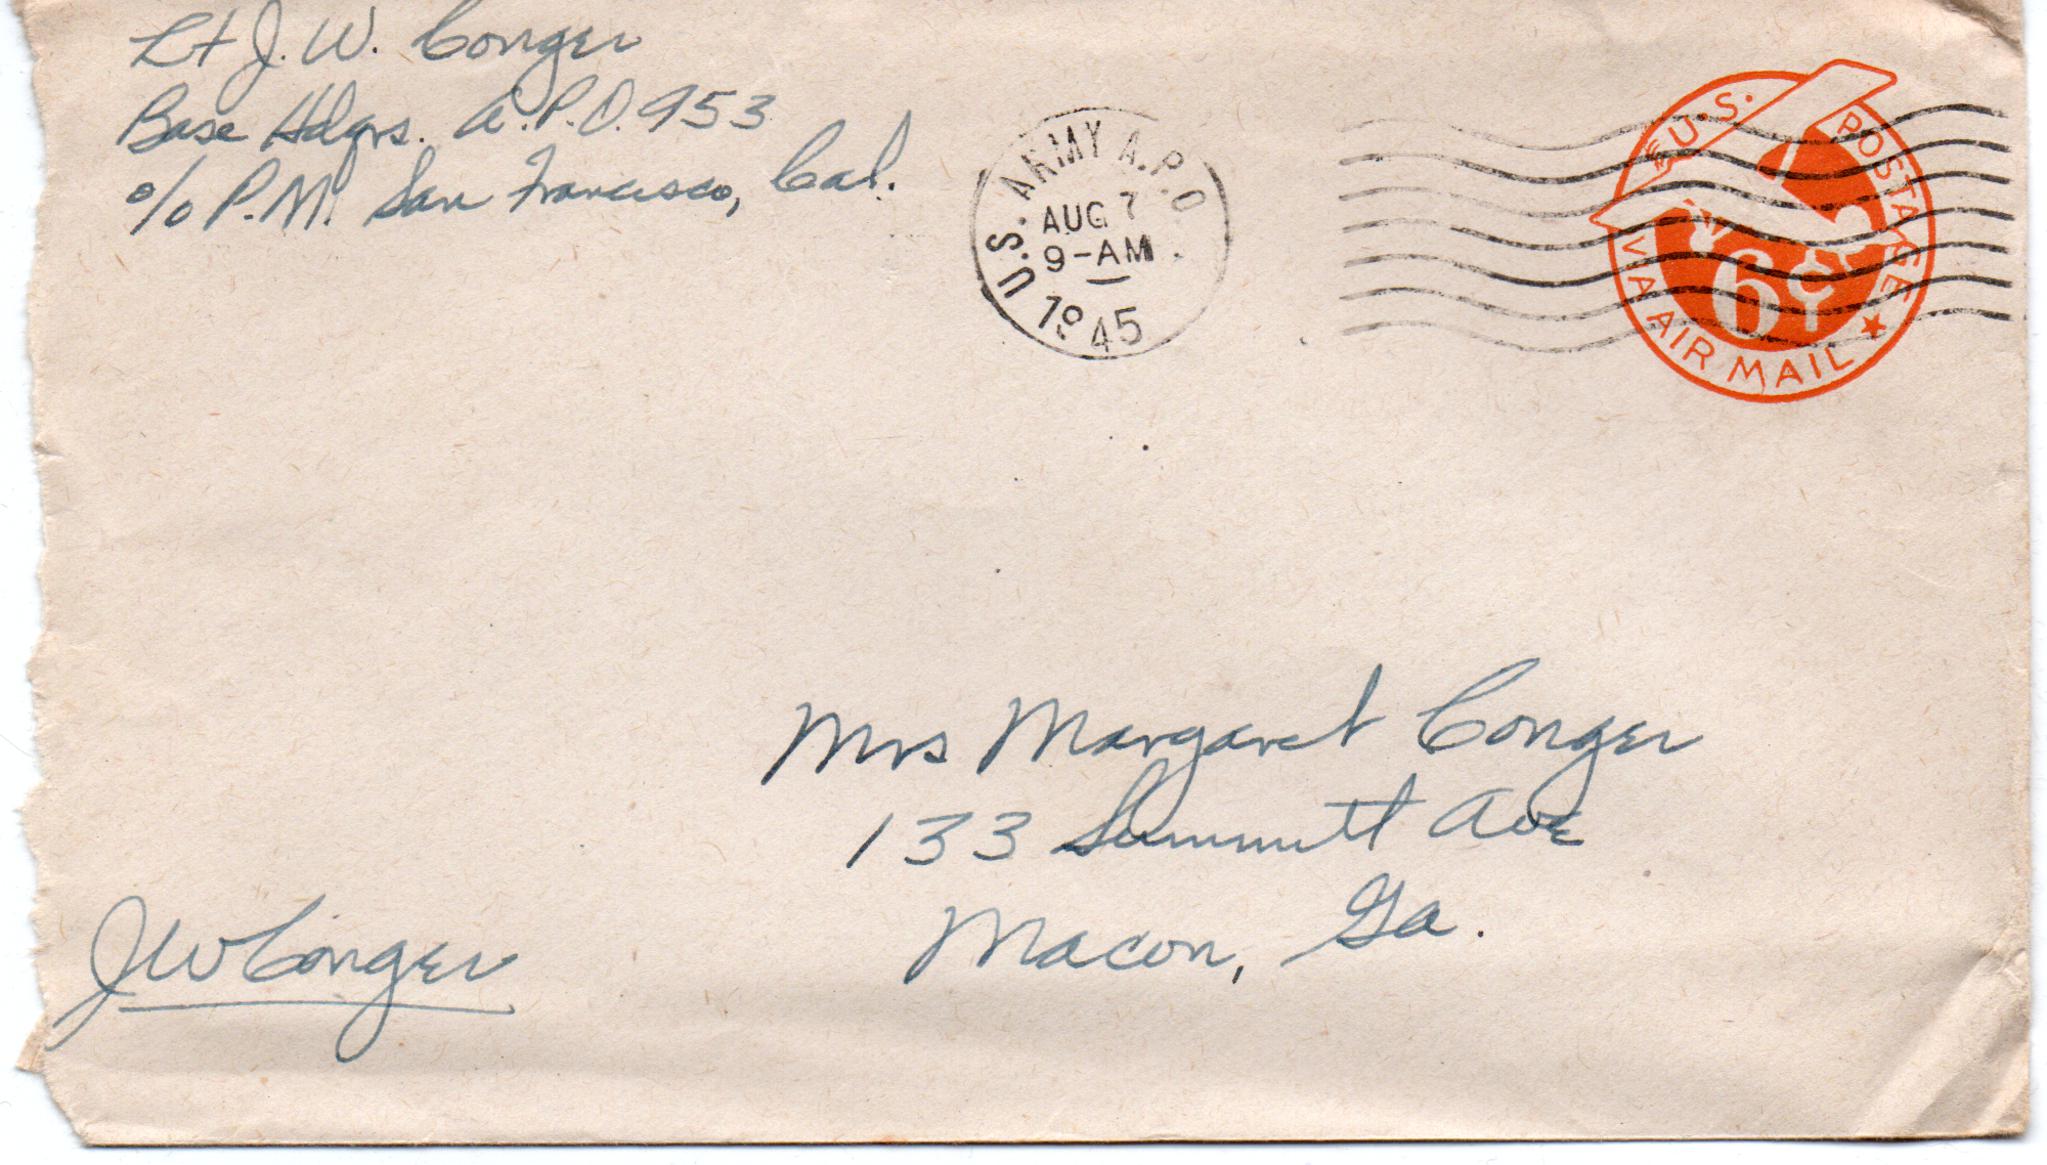 Lt J. W. Conger
Base Hdqrs. A.P.O. 953
c/o P.M. San Francisco, Cal.
U.S. ARMY A.P.O.
AUG 7
9-AM
1945
U.S. POSTAGE
6¢
VIA AIR MAIL
Mrs Margaret Conger
133 Summitt Ave
Macon, Ga.
JW Conger